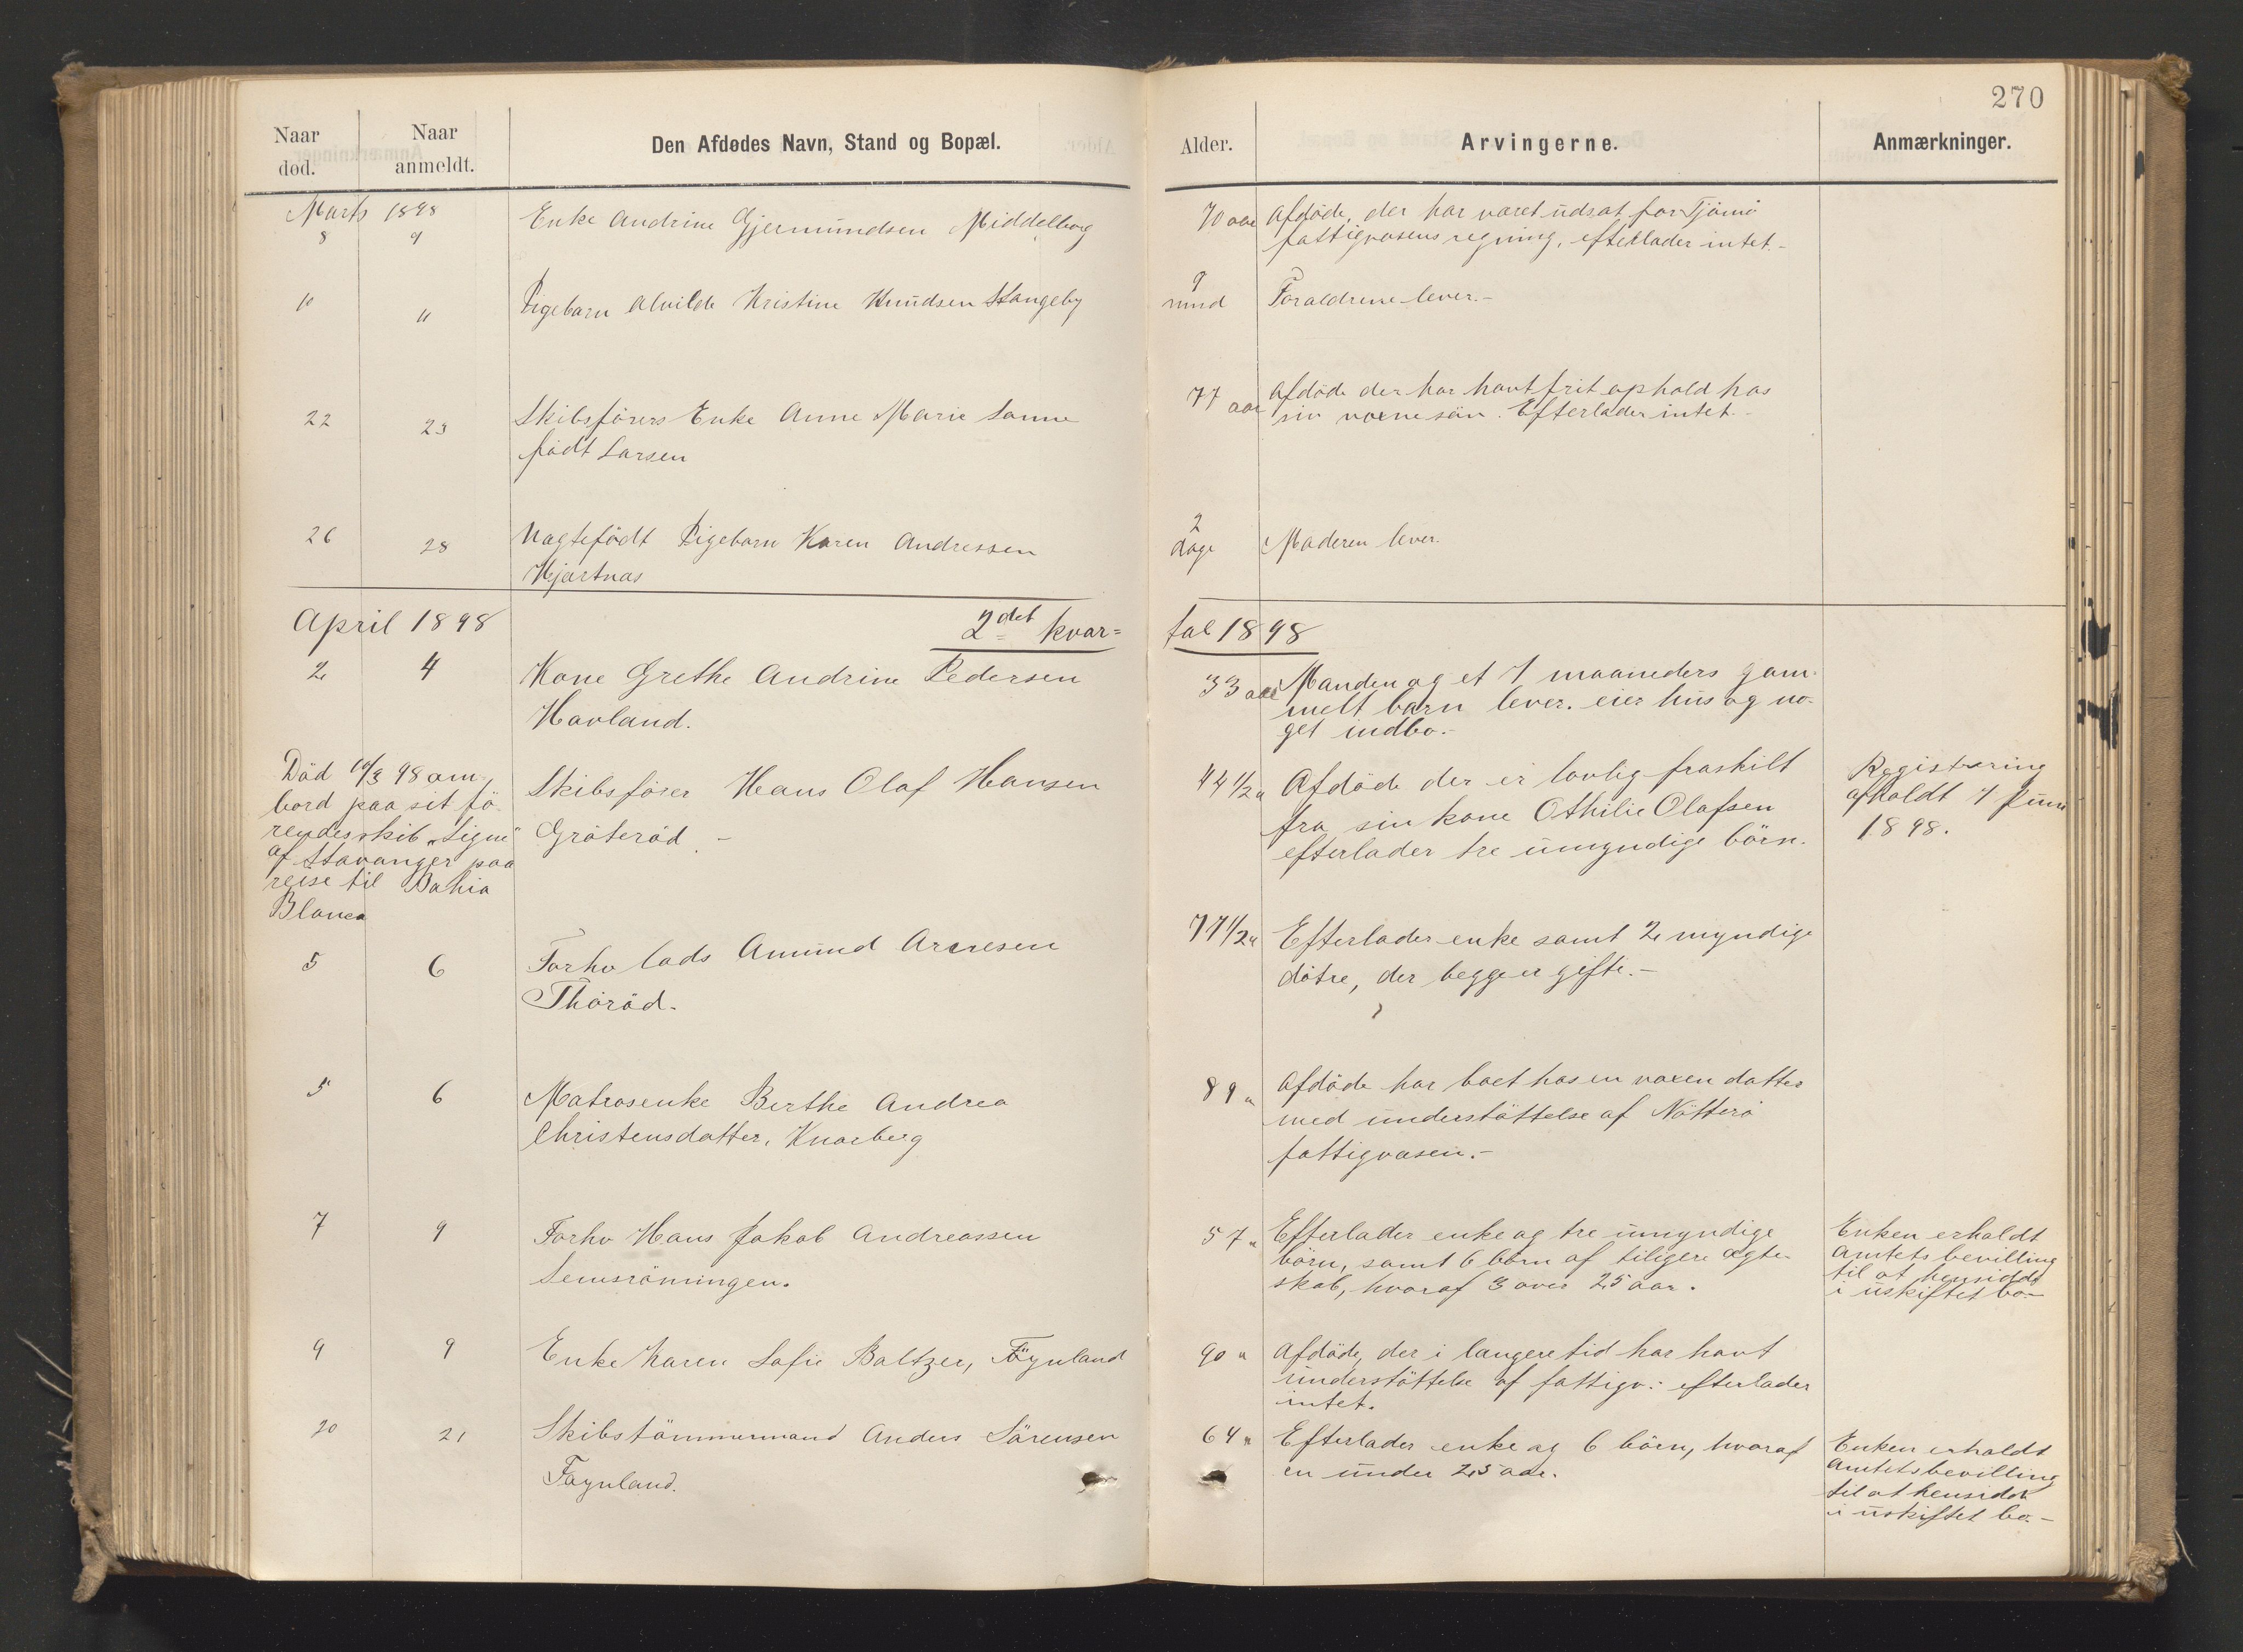 270
Naar død.
Naar anmeldt.
Den Afdødes Navn, Stand og Bopæl.
Alder.
Arvingerne.
Anmærkninger.
Marts 1898
8
9
Enke Andrine Gjermundsen Middelborg
70 aar
Afdöde, der har været udsat for Tjömö
fattigvæsens regning, efterlader intet.-
10
11
Pigebarn Alvilde Kristine Knudsen Stangeby
9
mnd
Forældrene lever.-
22
23
Skibsförers Enke Anne Marie Sanne
födt Larsen
77 aar
Afdöde der har havt frit ophold hos
sin voxne sön. Efterlader intet.
26
28
Uægtefödt Pigebarn Karen Andressen
Hjertnæs
2
dage
Moderen lever.
April 1898
2det kvar=
tal 1898
2
4
Kone Grethe Andrine Pedersen
Havland.
33 aar
Manden og et 7 maaneders gam-
melt barn lever. eier hus og no-
get indbo.-
Död 10/3 98 om-
bord paa sit fö-
rendes skib "Signe"
af Stavanger paa
reise til Bahia
Blanca
Skibsförer Hans Olaf Hansen
Gröteröd.-
44 1/2 "
Afdöde der er lovlig fraskilt
fra sin kone Othilie Olafsen
efterlader tre umyndige börn.
Registrering
afholdt 7 Juni
1898.
5
6
Forhv lods Amund Arresen
Thöröd.
77 1/2 "
Efterlader enke samt 2 myndige
dötre, der begge er gifte.-
5
6
Matrosenke Berthe Andrea
Christensdatter, Knarberg
89 "
Afdöde har boet hos en voxen datter
med understöttelse af Nötterö
fattigvæsen.-
7
9
Forhv Hans Jakob Andreassen
Semsröningen.
57 "
Efterlader enke og tre umyndige
börn, samt 6 börn af tiligere ægte-
skab, hvoraf 3 over 25 aar.
Enken erholdt
Amtets bevilling
til at hensidde
i uskiftet bo-
9
9
Enke Karen Sofie Baltzer, Föynland
90 "
Afdöde, der i længere tid har havt
understöttelse af fattigv: efterlader
intet.
20
21
Skibstömmermand Anders Sörensen
Föynland.
64 "
Efterlader enke og 6 börn, hvoraf
en under 25 aar.
Enken erholdt
Amtets bevilling
til at hensidde
i uskiftet bo.-